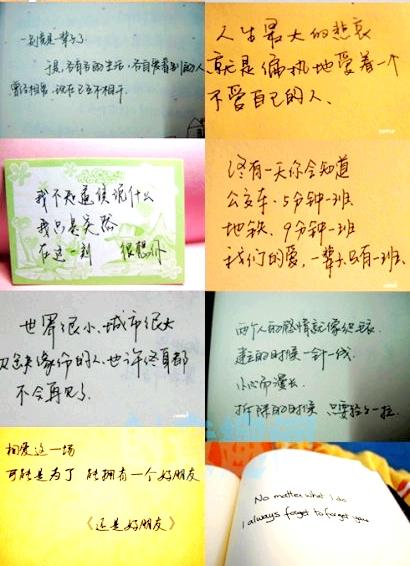 一别竟是一辈子了
于是,各有各的生活,各自爱着别的人
曾经相爱,现在已互不相干
人生最大的悲哀
就是偏执地爱着一个
不爱自己的人、
我不知道该说什么
我只是突然
在这一刻 很想你
终有一天你会知道
公交车、5分钟一班
地铁、9分钟一班
我们的爱,一辈子只有一班、
世界很小、城市很大
缘份的人、也许终身都
不会再见了、
两个人的感情就像织毛衣、
建立的时候一针一线、
小心而漫长、
的时候 只要轻轻一拉、
相爱这一场
可能是为了 能拥有一个好朋友
《还是好朋友》
No matter what I do
I always forget to forget you